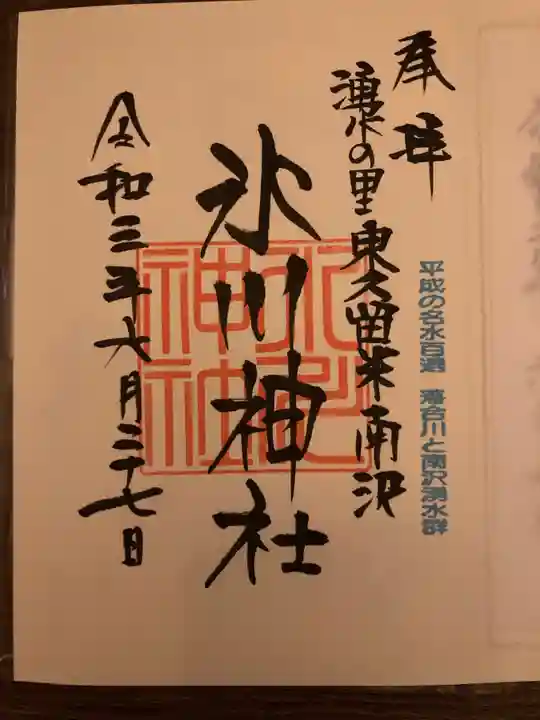 奉拝
湧水の里 東久留米南沢
平成の名水百選 落合川と南沢湧水群
氷川神社
氷川神社
令和三年六月二十七日